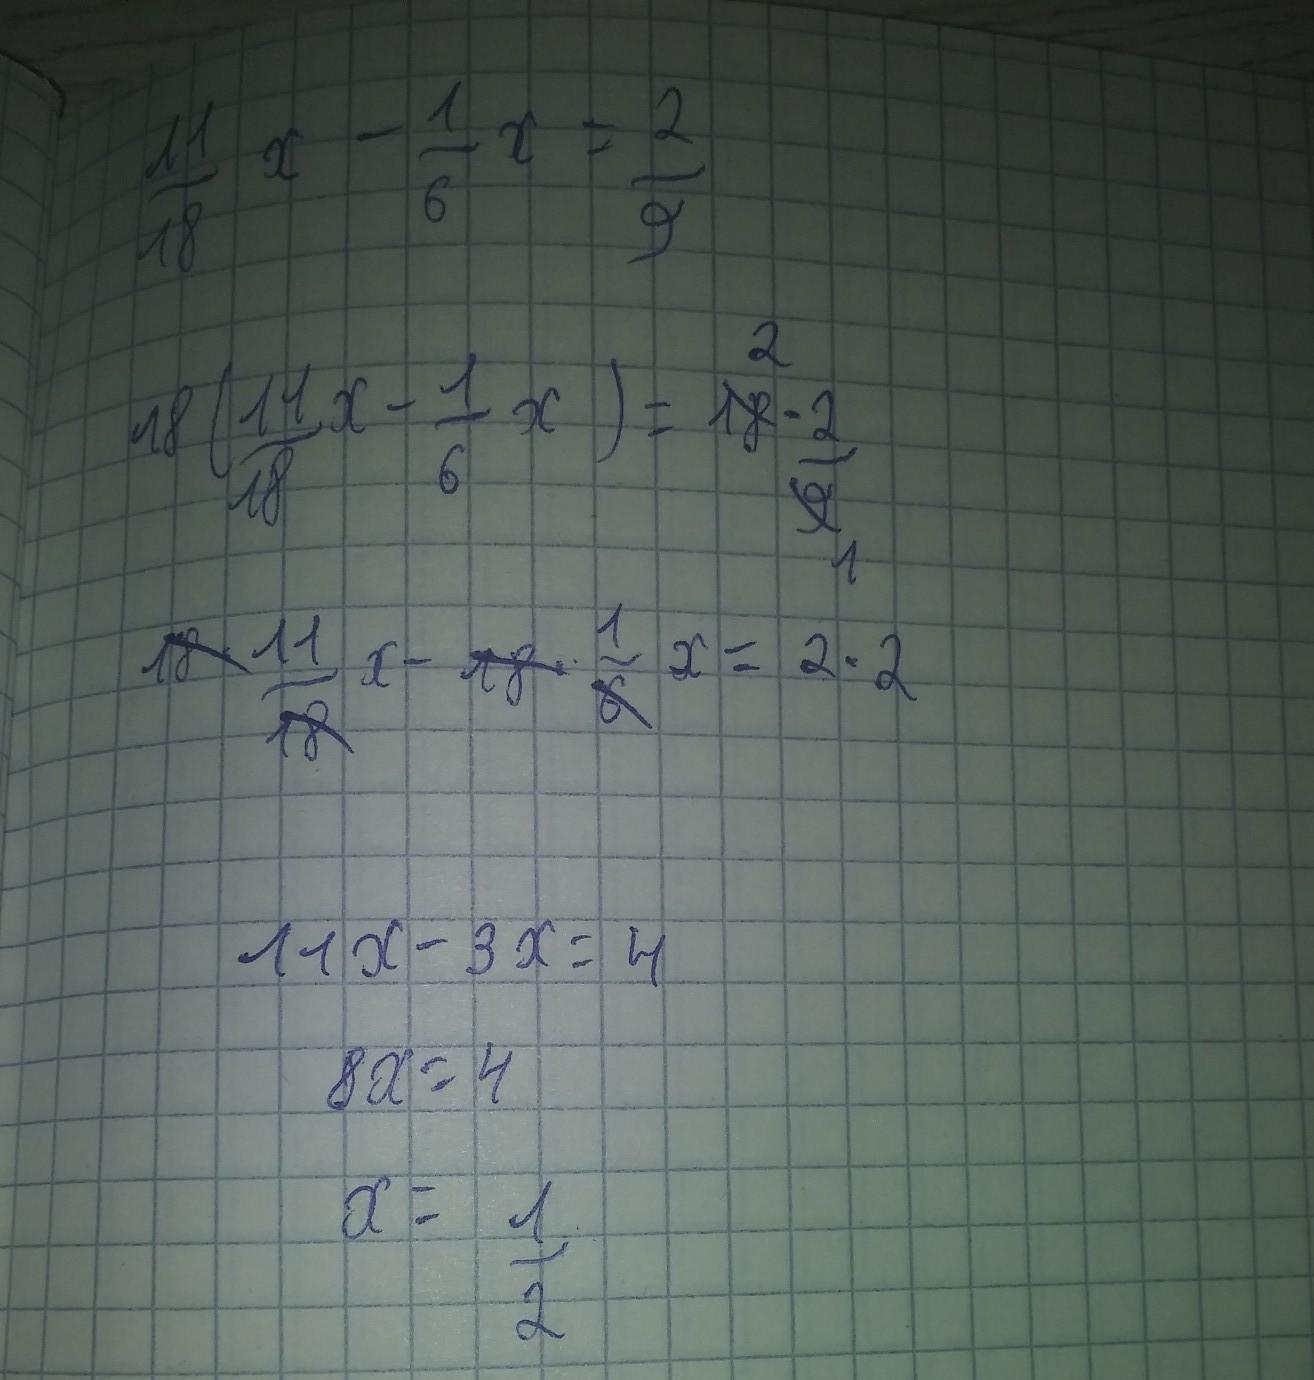 11/18 x - 1/6 x = 2/9
18(11/18 x - 1/6 x) = 18 · 2/9 2 1
18 · 11/18 x - 18 · 1/6 x = 2 · 2
11x - 3x = 4
8x = 4
x = 1/2